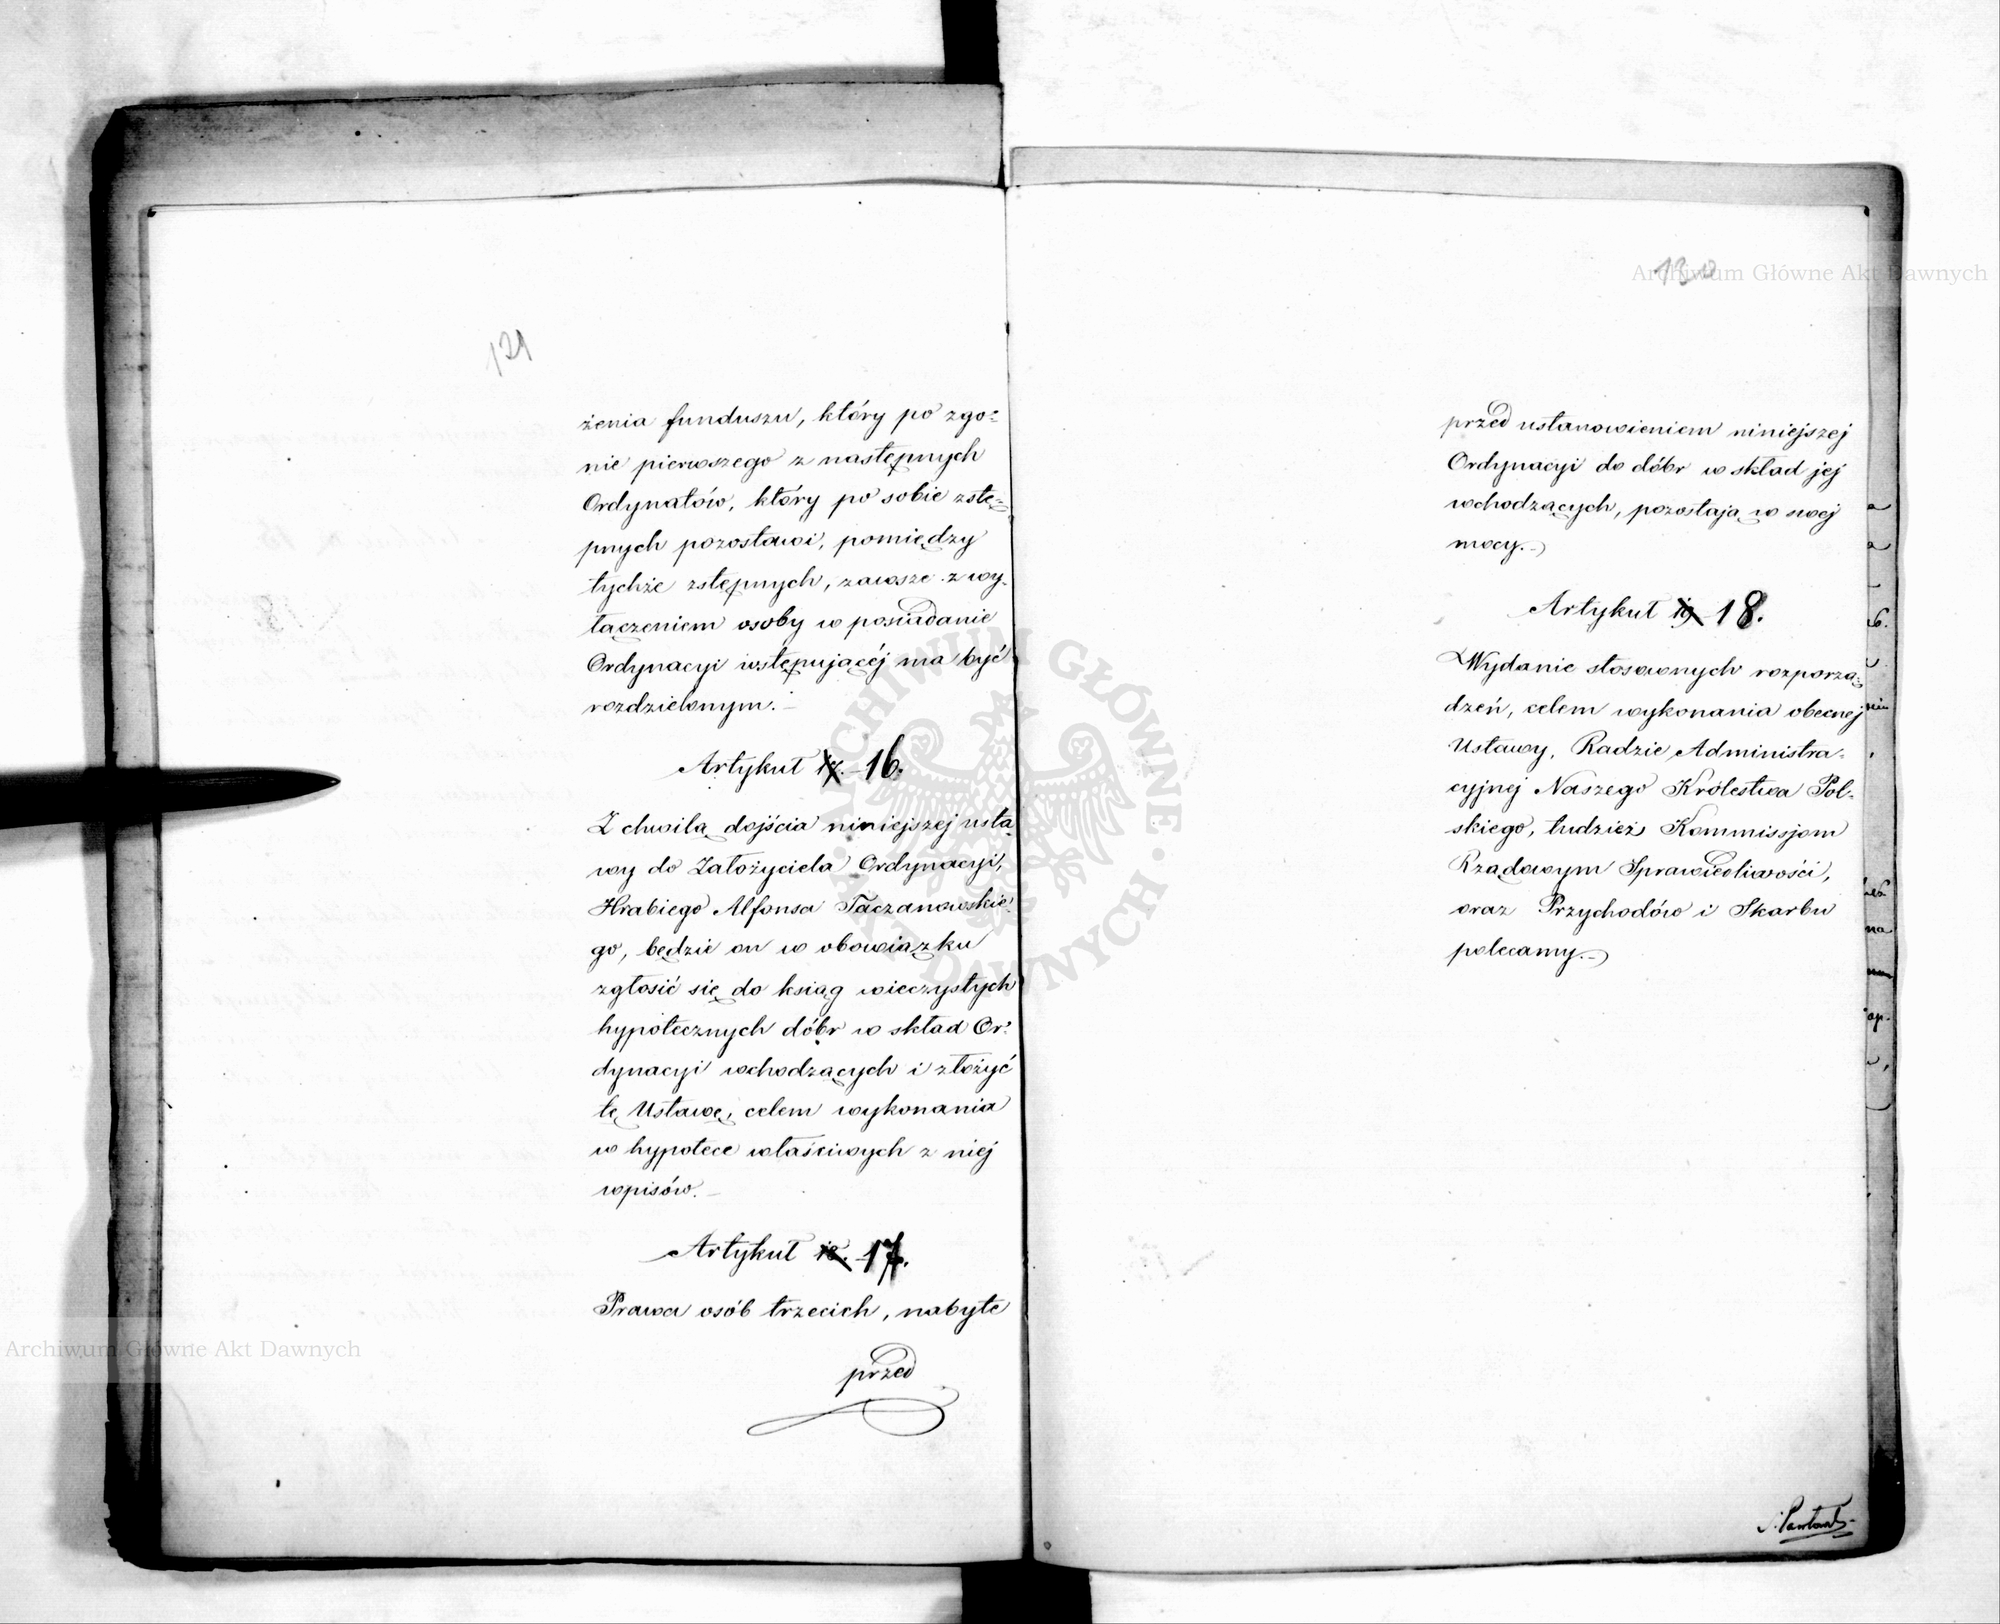 129
żenia funduszu, który po zgo-
nie pierwszego z następnych
Ordynatów, który po sobie zstę-
pnych pozostawi, pomiędzy
tychże zstępnych, zawsze z wy-
łączeniem osoby w posiadanie
Ordynacyi wstępującéj ma być
rozdzielonym.
Artykuł 17. 16.
Z chwilą dojścia niniejszej usta-
wy do Założyciela Ordynacyi,
Hrabiego Alfonsa Taczanowskie-
go, będzie on w obowiązku
zgłosić się do ksiąg wieczystych
hypotecznych dóbr w skład Or-
dynacyi wchodzących i złożyć
tę Ustawę, celem wykonania
w hypotece właściwych z niej
wpisów.
Artykuł 18. 17.
Prawa osób trzecich, nabyte
przed
130
przed ustanowieniem niniejszej
Ordynacyi do dóbr w skład jej
wchodzących, pozostają w swej
mocy.
Artykuł 19 18.
Wydanie stosownych rozporzą-
dzeń, celem wykonania obecnej
Ustawy, Radzie Administra-
cyjnej Naszego Królestwa Pol-
skiego, tudzież Kommissjom
Rządowym Sprawiedliwości,
oraz Przychodów i Skarbu
polecamy.
Archiwum Główne Akt Dawnych
Archiwum Główne Akt Dawnych
ARCHIWUM GŁÓWNE AKT DAWNYCH